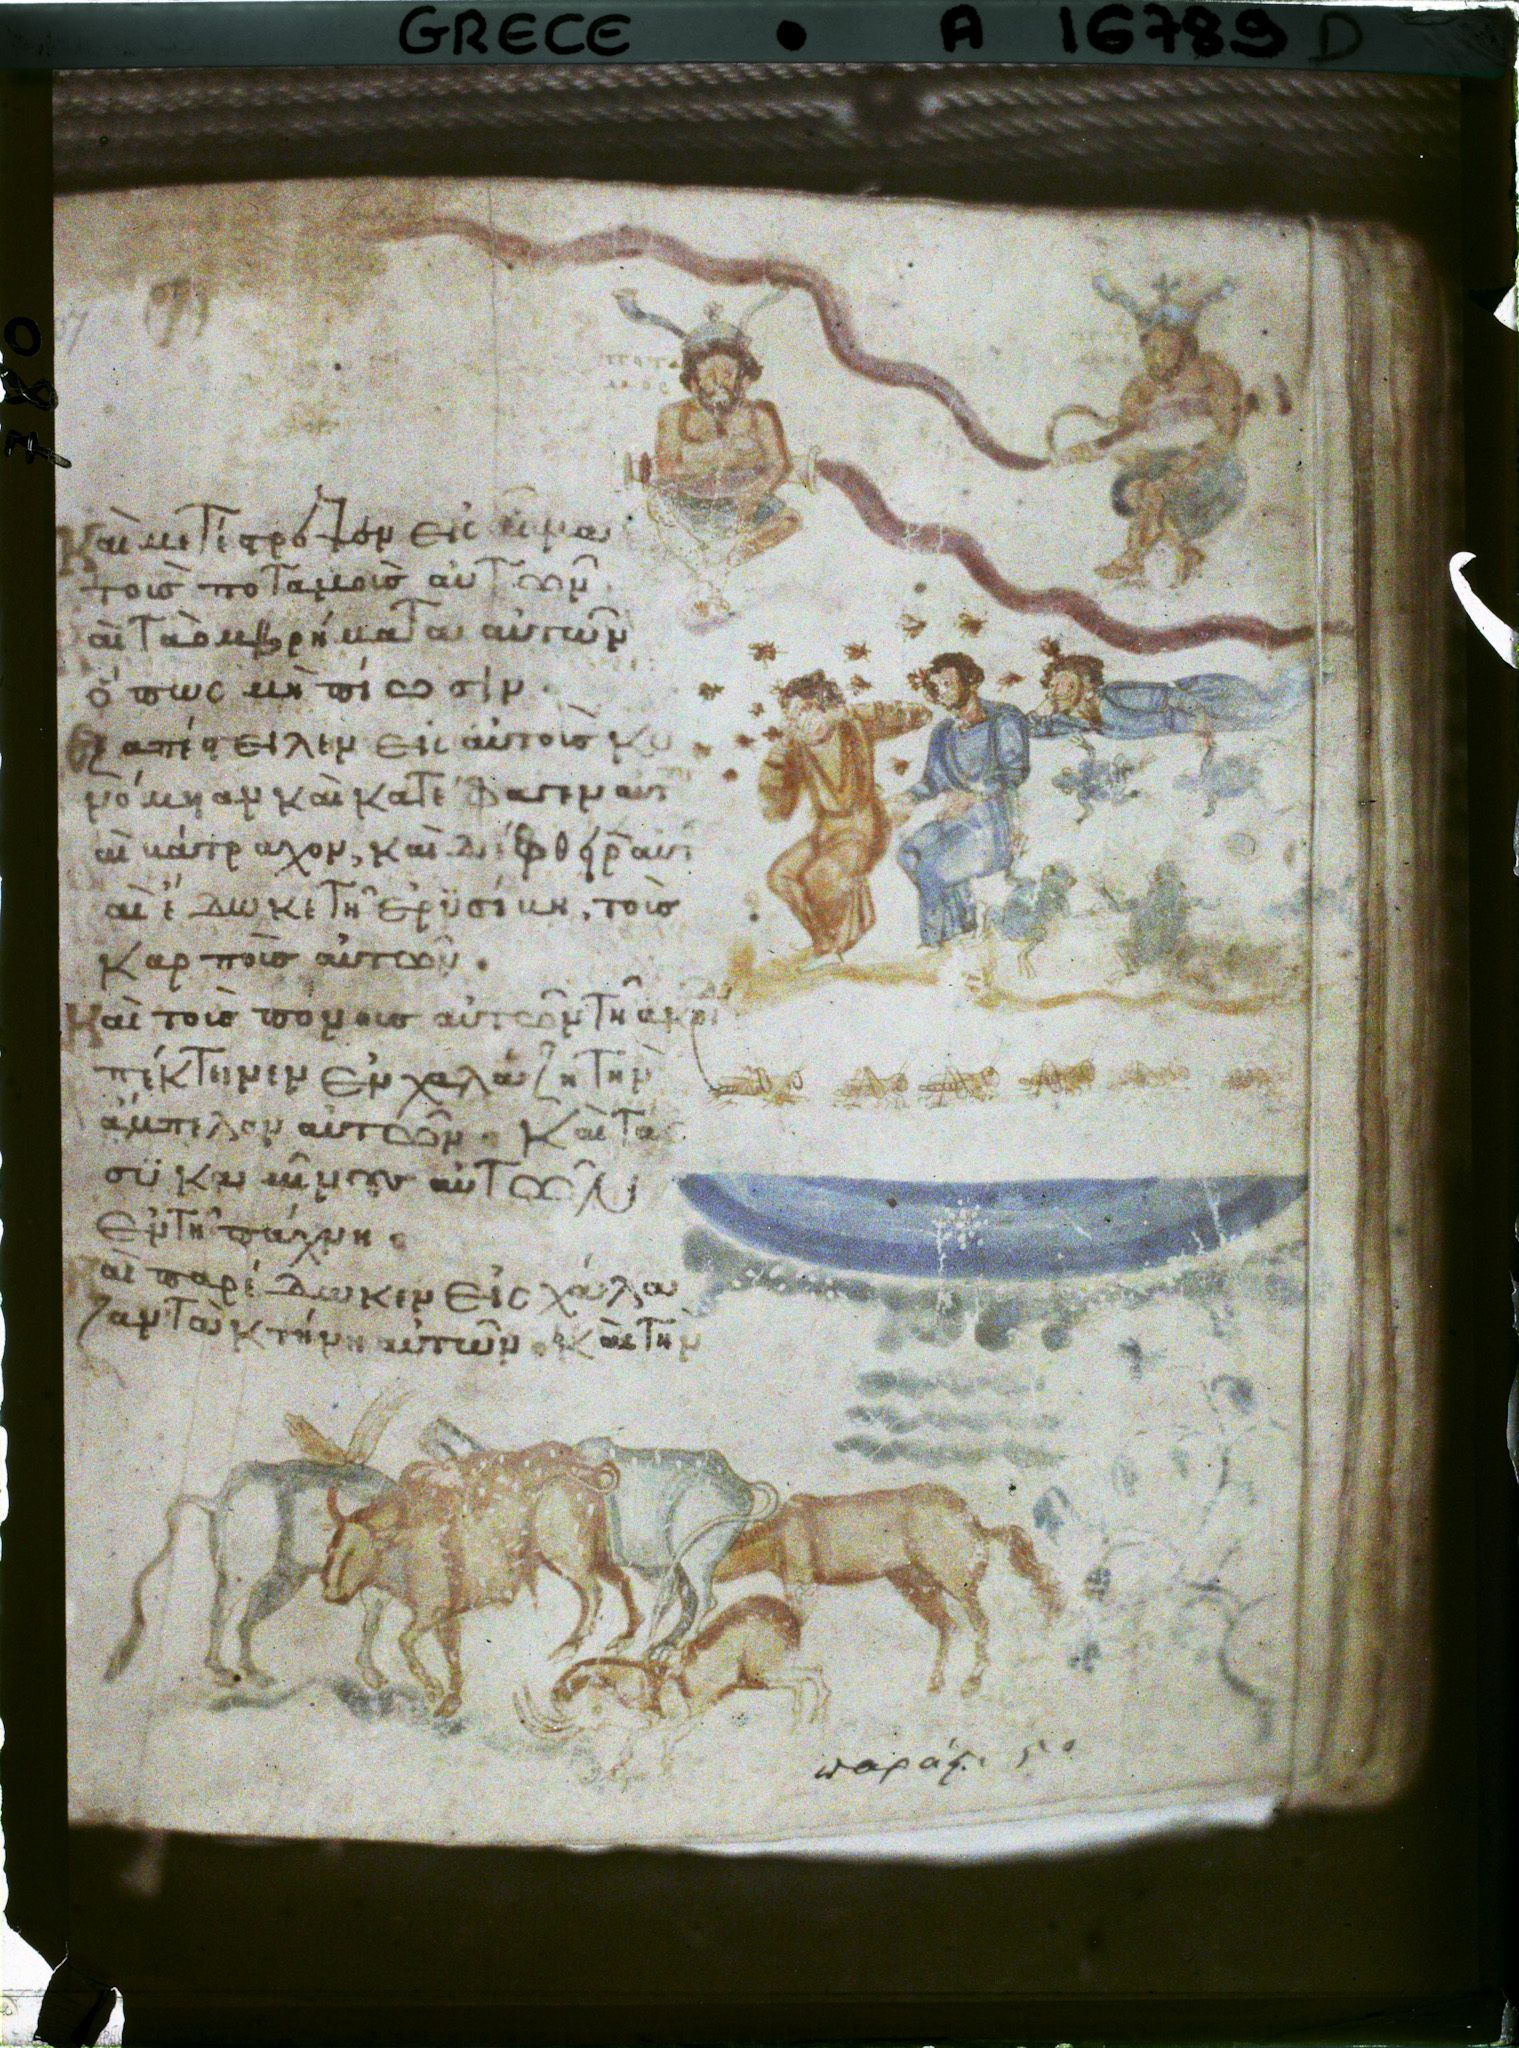 GRECE • A 16789 D
780
ποτα
μος
Καὶ μετέστρεψεν εἰς αἷμα
τοὺς ποταμοὺς αὐτῶν,
καὶ τὰ ὀμβρήματα αὐτῶν
ὅπως μὴ πίωσιν.
Ἐξαπέστειλεν εἰς αὐτοὺς κυ
νόμυιαν καὶ κατέφαγεν αὐτ
βάτραχον, καὶ διέφθειρεν αὐτ
καὶ ἔδωκε τῇ ἐρυσίβῃ, τοὺς
καρποὺς αὐτῶν.
Καὶ τοὺς πόνους αὐτῶν τῇ ἀκρί
ἀπέκτεινεν ἐν χαλάζῃ τὴν
ἄμπελον αὐτῶν. Καὶ τὰς
συκαμίνους αὐτῶν
ἐν τῇ πάχνῃ.
Καὶ παρέδωκεν εἰς χάλα
ζαν τὰ κτήνη αὐτῶν. Καὶ τὴν